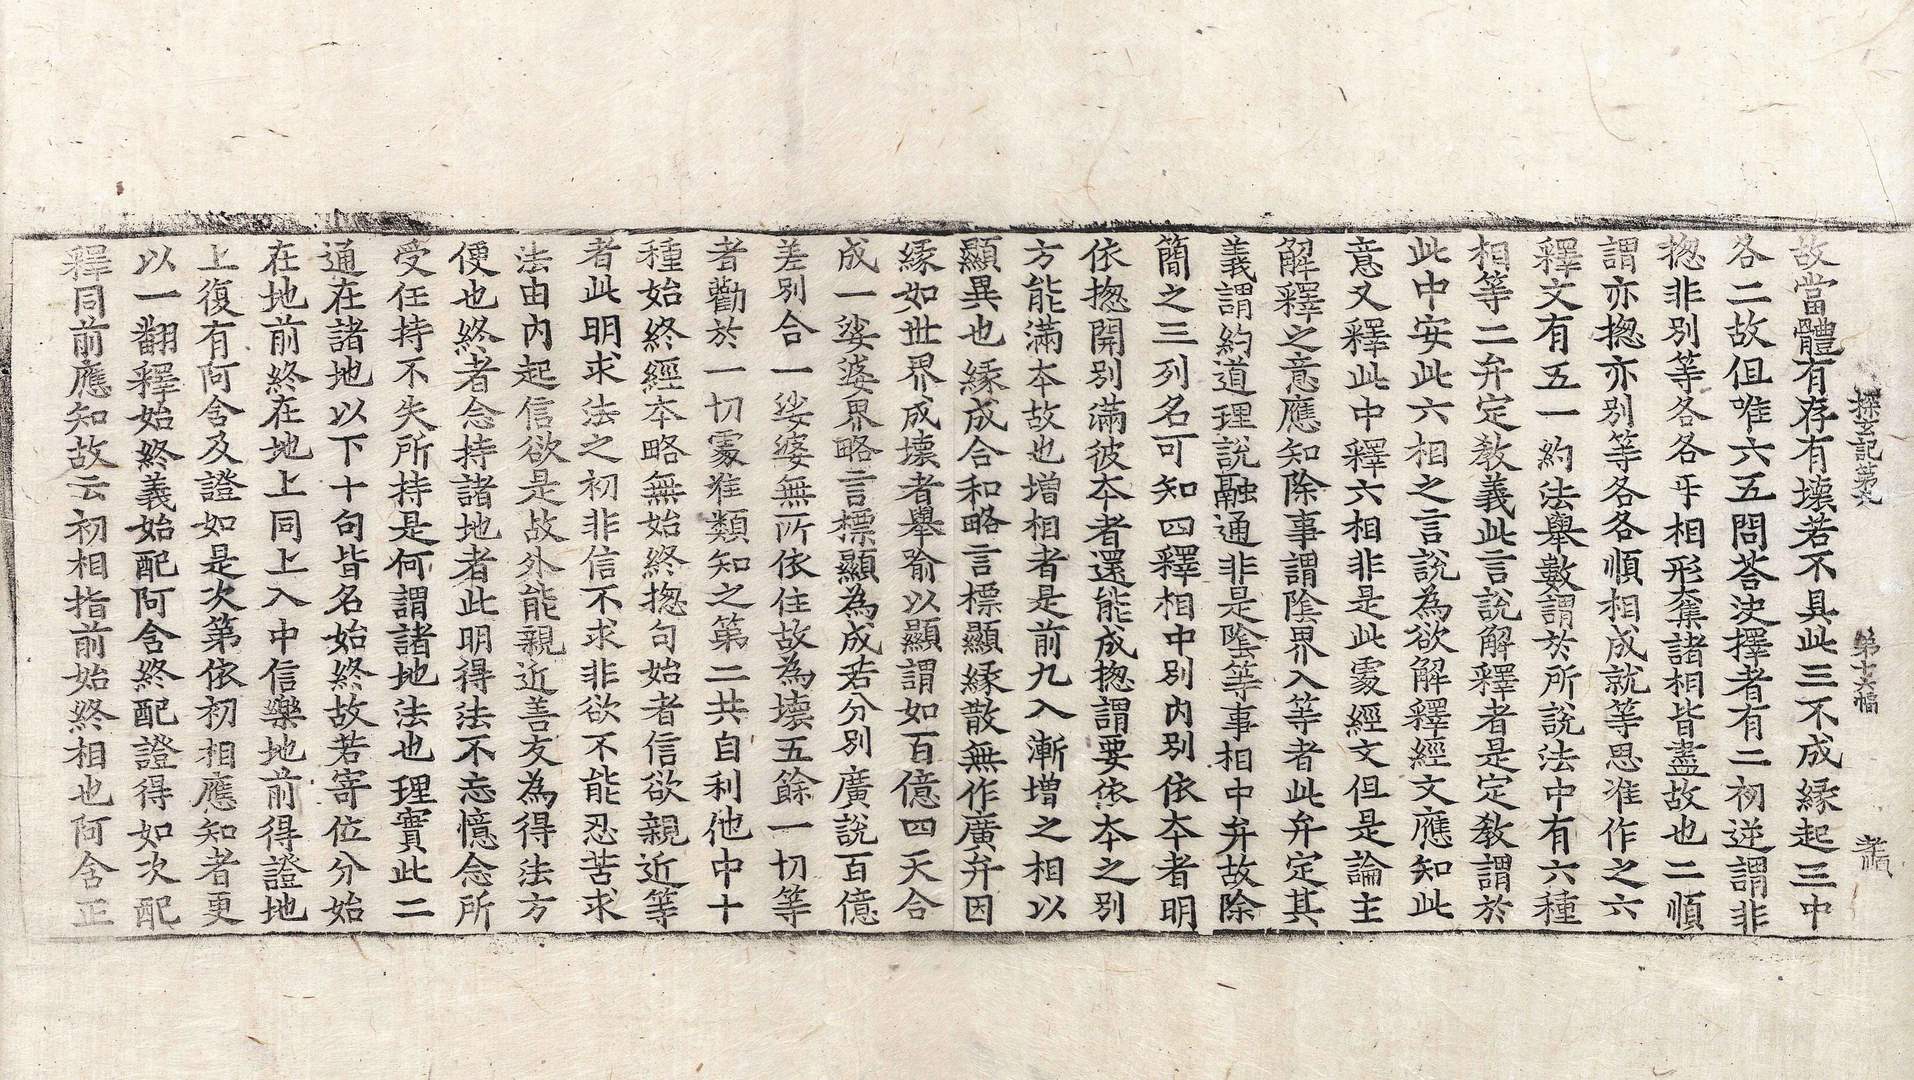 探玄記第九 第十六幅 孝順
故當體有存有壞若不具此三不成縁起三中
各二故但唯六五問荅決擇者有二初逆謂非
揔非別等各各㸦相形奪諸相皆盡故也二順
謂亦揔亦別等各各順相成就等思准作之六
釋文有五一約法舉數謂於所說法中有六種
相等二弁定教義此言說解釋者是定教謂於
此中安此六相之言說為欲解釋經文應知此
意又釋此中釋六相非是此䖏經文但是論主
解釋之意應知除事謂陰界入等者此弁定其
義謂約道理說融通非是陰等事相中弁故除
簡之三列名可知四釋相中別內別依夲者明
依揔開別滿彼夲者還能成揔謂要依夲之別
方能滿夲故也增相者是前九入漸增之相以
顯異也縁成合和略言標顯縁散無作廣弁因
縁如世界成壞者舉喻以顯謂如百億四天合
成一娑婆界略言標顯為成若分別廣說百億
差別合一娑婆無所依住故為壞五餘一切等
者勸於一切䖏准類知之第二共自利他中十
種始終經本略無始終揔句始者信欲親近等
者此明求法之初非信不求非欲不能忍苦求
法由內起信欲是故外能親近善友為得法方
便也終者念持諸地者此明得法不忘憶念所
受任持不失所持是何謂諸地法也理實此二
通在諸地以下十句皆名始終故若寄位分始
在地前終在地上同上入中信樂地前得證地
上復有阿含及證如是次第依初相應知者更
以一翻釋始終義始配阿含終配證得如次配
釋同前應知故云初相指前始終相也阿含正